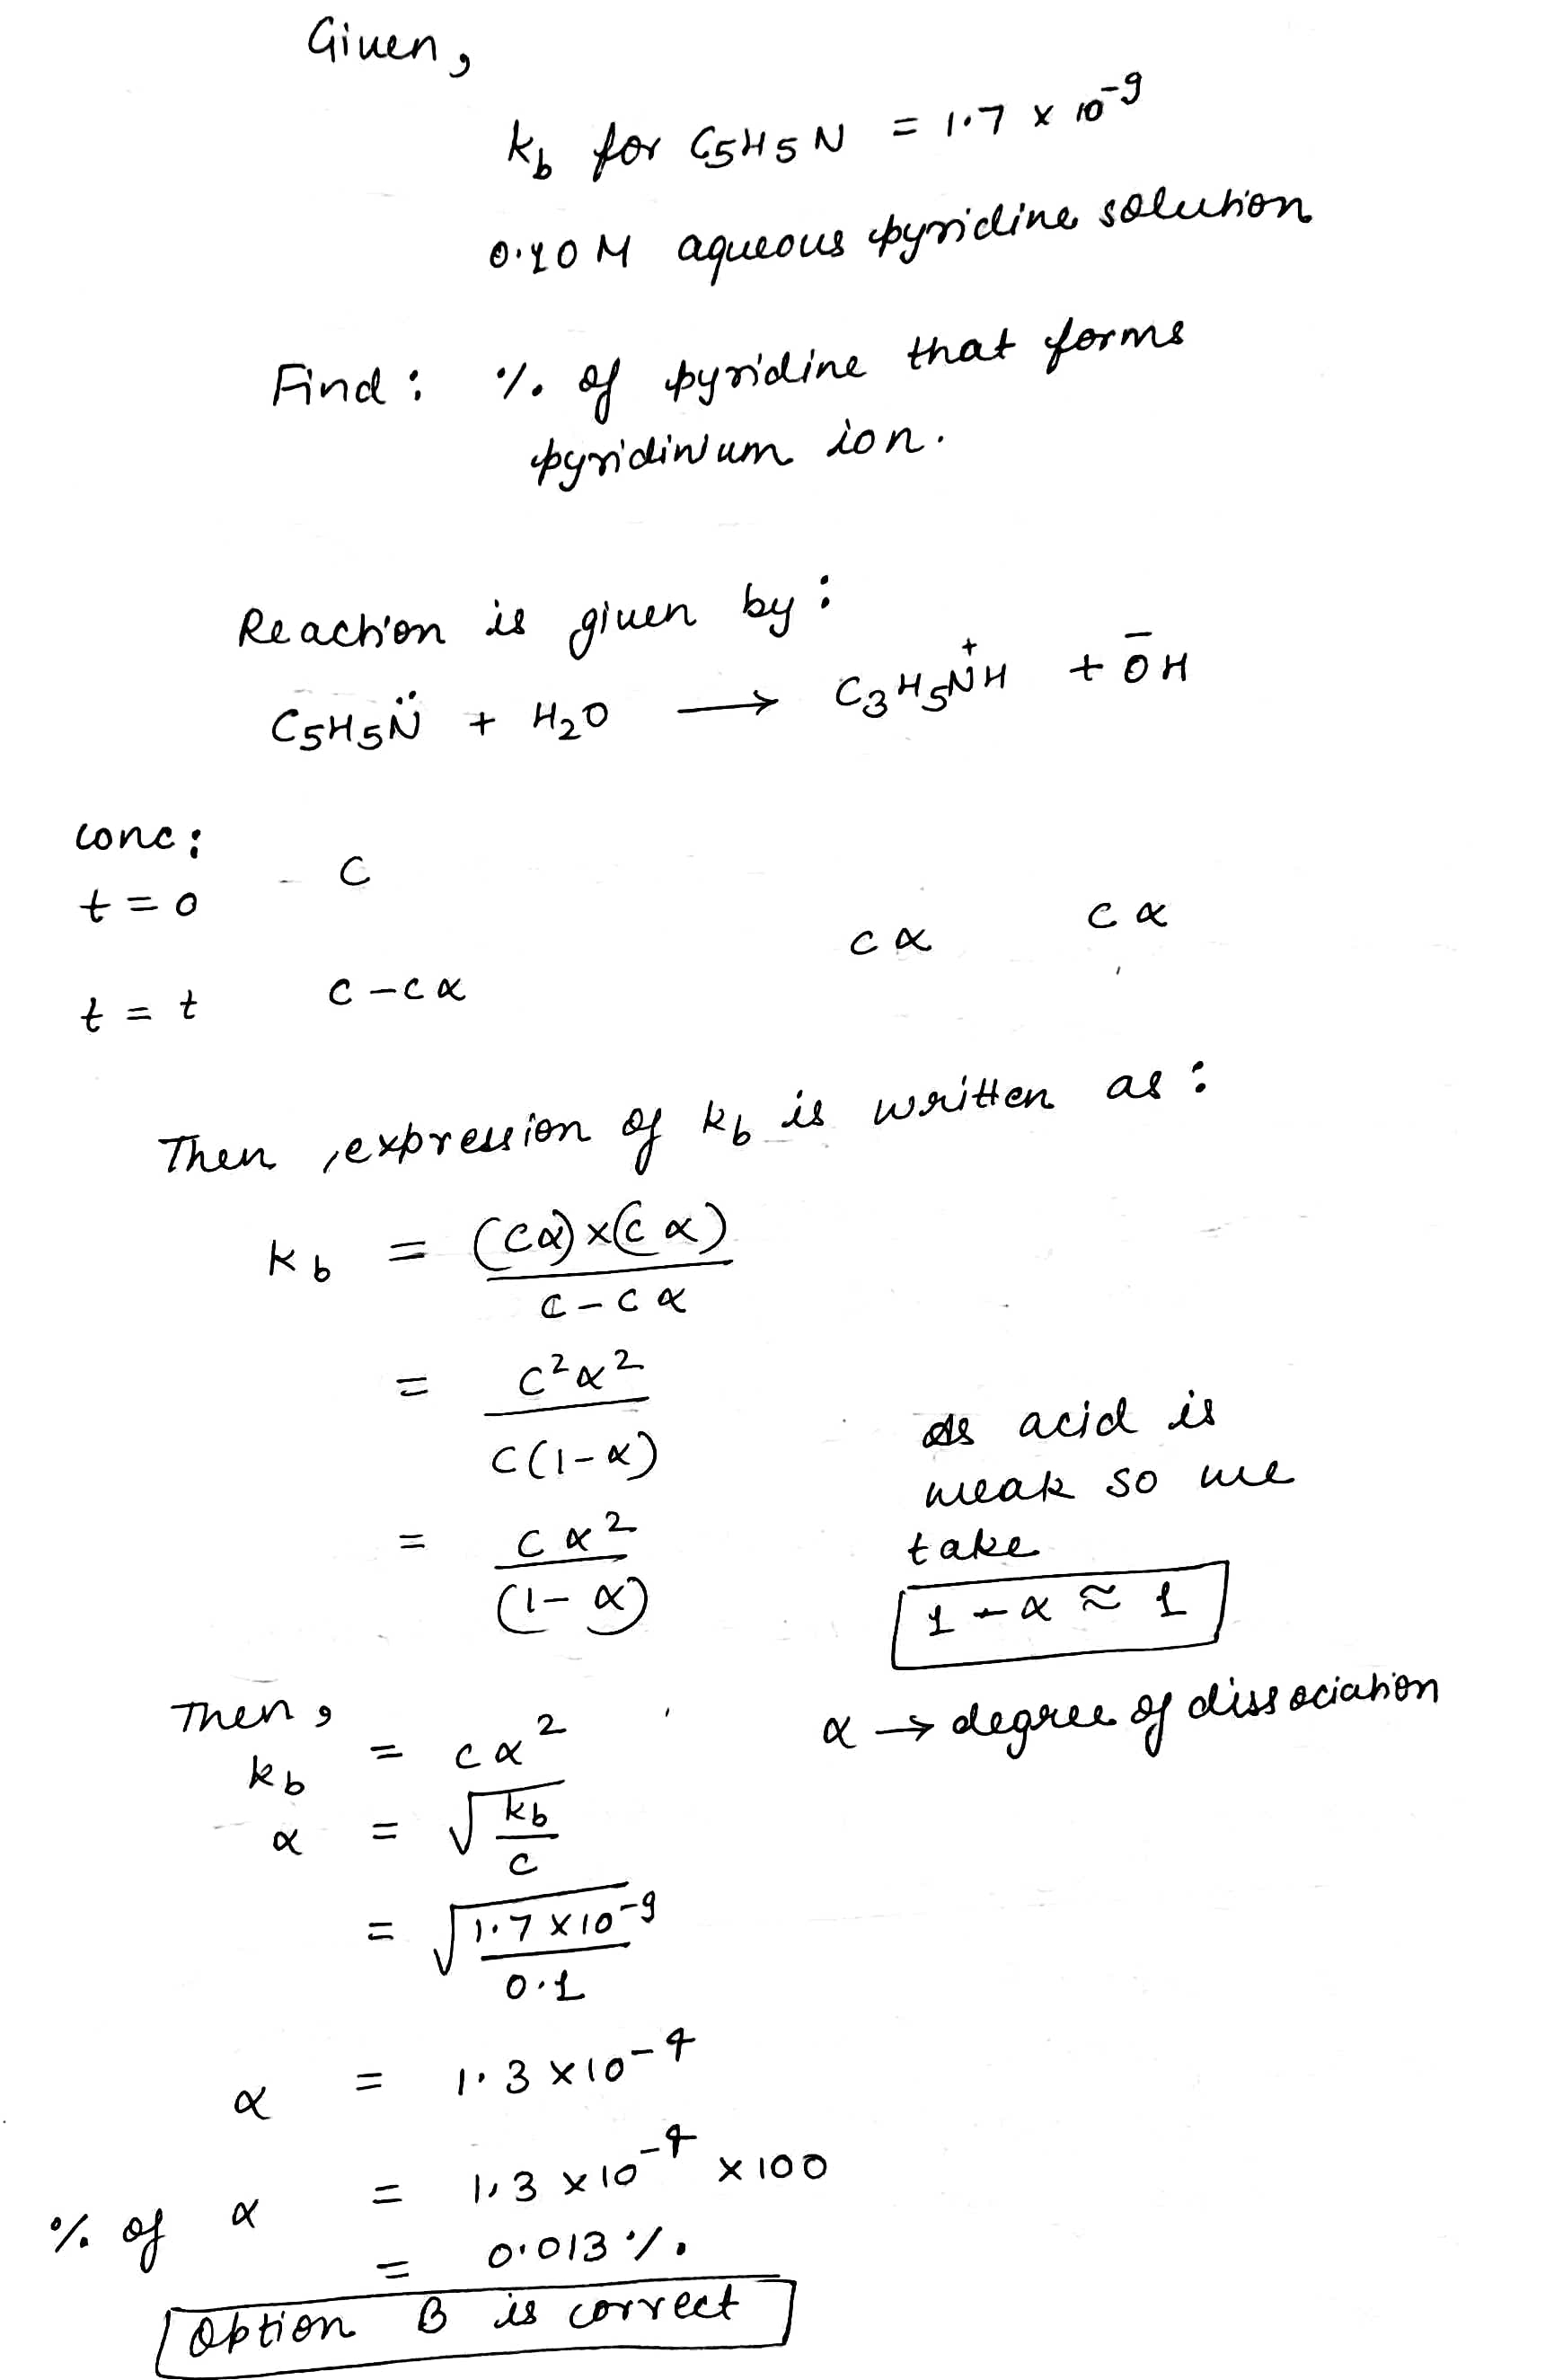 Given,
kb for C5H5N = 1.7 × 10⁻⁹
0.10 M aqueous pyridine solution
Find : % of pyridine that forms
pyridinium ion.
Reaction is given by :
C5H5N̈ + H2O ⟶ C3H5N⁺H + ŌH
conc :
t = 0 C
t = t C - Cα Cα Cα
Then, expression of kb is written as :
kb = (Cα) × (Cα) / C - Cα
= C²α² / C(1-α)
= Cα² / (1-α)
As acid is
weak so we
take
1 - α ≈ 1
Then,
kb = Cα²
α → degree of dissociation
α = √(kb / C)
= √(1.7 × 10⁻⁹ / 0.1)
α = 1.3 × 10⁻⁴
% of α = 1.3 × 10⁻⁴ × 100
= 0.013 %.
Option B is correct